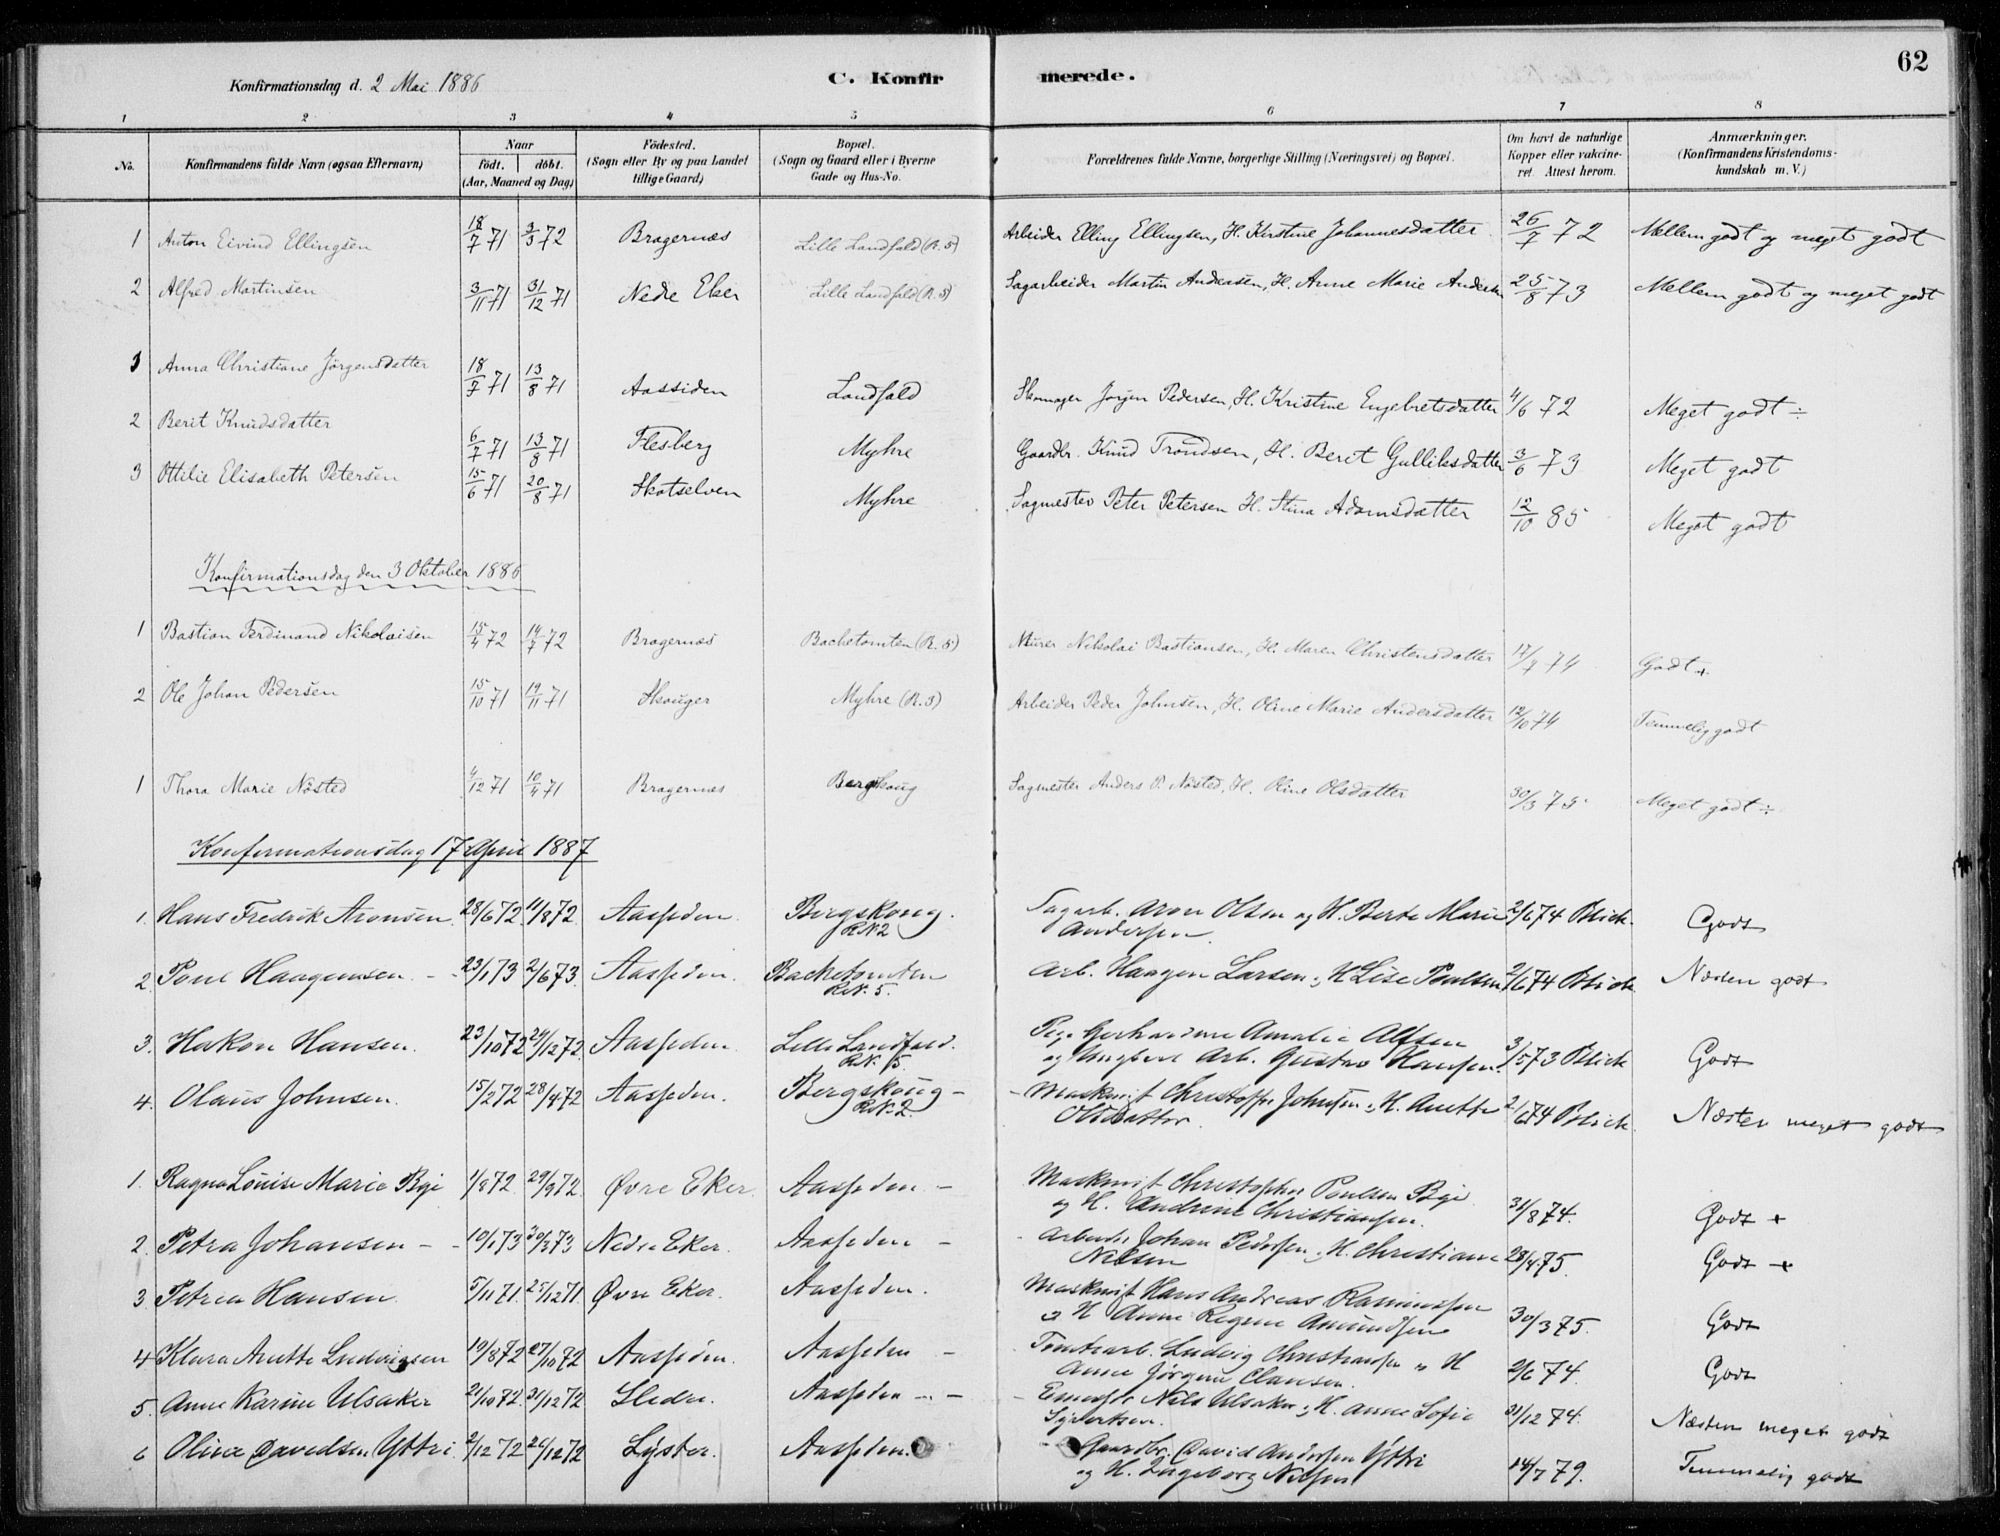 62
Konfirmationsdag d. 2 Mai 1886 C. Konfirmerede.
1 2 3 4 5 6 7 8
No. Konfirmandens fulde Navn (ogsaa Efternavn) Naar født. døbt. (Aar, Maaned og Dag) Fødested. (Sogn eller By og paa Landet tillige Gaard) Bopæl. (Sogn og Gaard eller i Byerne Gade og Hus-No. Forældrenes fulde Navne, borgerlige Stilling (Næringsvei) og Bopæl. Om havt de naturlige Kopper eller vakcineret. Attest herom. Anmærkninger. (Konfirmandens Kristendomskundskab m. V.)
1 Anton Eivind Ellingsen 18/7 71 3/3 72 Bragernæs Lille Landfald (R. 5) Arbeider Elling Ellingsen, H. Kirstine Johannesdatter 26/7 72 Mellem godt og meget godt
2 Alfred Martinsen 3/11 71 31/12 71 Nedre Eker Lille Landfald (R. 5) Sagarbeider Martin Andersen, H. Anne Marie Andersen 25/8 73 Mellem godt og meget godt
1 Anna Christiane Jørgensdatter 18/7 71 13/8 71 Aassiden Landfald Skomager Jørgen Pedersen, H. Kristine Engebretsdatter 4/6 72 Meget godt ÷
2 Berit Knudsdatter 6/7 71 13/8 71 Flesberg Myhre Gaardbr. Knud Trondsen, H. Beret Gulliksdatter 3/6 73 Meget godt
3 Ottilie Elisabeth Petersen 15/6 71 20/8 71 Skotselven Myhre Sagmester Peter Petersen H. Stina Adamsdatter 12/10 85 Meget godt
Konfirmationsdag den 3 Oktober 1886
1 Bastian Ferdinand Nikolaisen 15/4 72 14/7 72 Bragernæs Bachetomten (R. 5) Murer Nikolai Bastiansen, H. Maren Christensdatter 17/7 74 Godt +
2 Ole Johan Pedersen 15/10 71 19/11 71 Skouger Myhre (R. 3) Arbeider Peder Johnsen, H. Oline Marie Andersdatter 12/10 74 Temmelig godt
1 Thora Marie Nøsted 4/12 71 10/4 71 Bragernæs Bergskoug Sagmester Anders P. Nøsted, H. Oline Olsdatter 30/3 75 Meget godt ÷
Konfirmationsdag 17 April 1887
1. Hans Fredrik Aronsen 28/6 72 11/8 72 Aasseden. Bergskoug. Sagarb. Aron Olsen og H. Berte Marie 2/6 74 Blich. Godt
R.N. 2 Andersen
2. Poul Haagensen 23/1 73 2/6 73 Aasseden. Bachetomten Arb. Haagen Larsen, H Lise Poulsen 2/6 74 Blich. Næsten godt
R.N. 5.
3. Hakon Hansen. 23/10 72 24/12 72 Aasseden. Lille Landfald. Pige Gerhardine Amalie Alfsen
R.N. 5. og Ungkarl Arb. Gustav Hansen. 3/5 73 Blich Godt
4. Olaus Johnsen. 15/2 72 28/4 72 Aasseden. Bergskoug Maskmst Christoffer Johnsen, H. Anette 2/6 74 Blich. Næsten meget godt
R.N. 2 Olsdatter.
1. Ragna Louise Marie Bye 1/8 72 29/9 72 Øvre Eker. Aasseden Maskmst Christopher Poulsen Bye
og H. Andrine Christiansen. 31/8 74. Godt +
2. Petra Johansen 10/1 73 30/3 73 Nedre Eker. Aasseden Arbeider Johan Pedersen, H. Christiane
Nilsen 28/4 75. Godt +
3 Petrea Hansen 5/11 71. 25/12 71 Øvre Eker. Aasseden. Maskmst Hans Andreas Rasmussen
o H Anne Regine Amundsen 30/3 75. Godt
4 Klara Anette Ludvigsen 19/8 72 27/10 72 Aasseden. Aasseden Tomtearb. Ludvig Christiansen " H
Anne Jørgine Clausen. 2/6 74. Godt
5. Anne Karine Ulsaker 21/10 72 31/12 72 Sledre. Aasseden Nils Ulsaker, H. Anne Sofie
Syvertsen. 31/12 74. Næsten meget godt
6 Oline Davedsen Yttri 2/12 72 26/12 72 Lyster. Aasseden. Gaardbr. David Andersen Yttri
og H. Ingeborg Nilsen 14/7 79. Temmelig godt